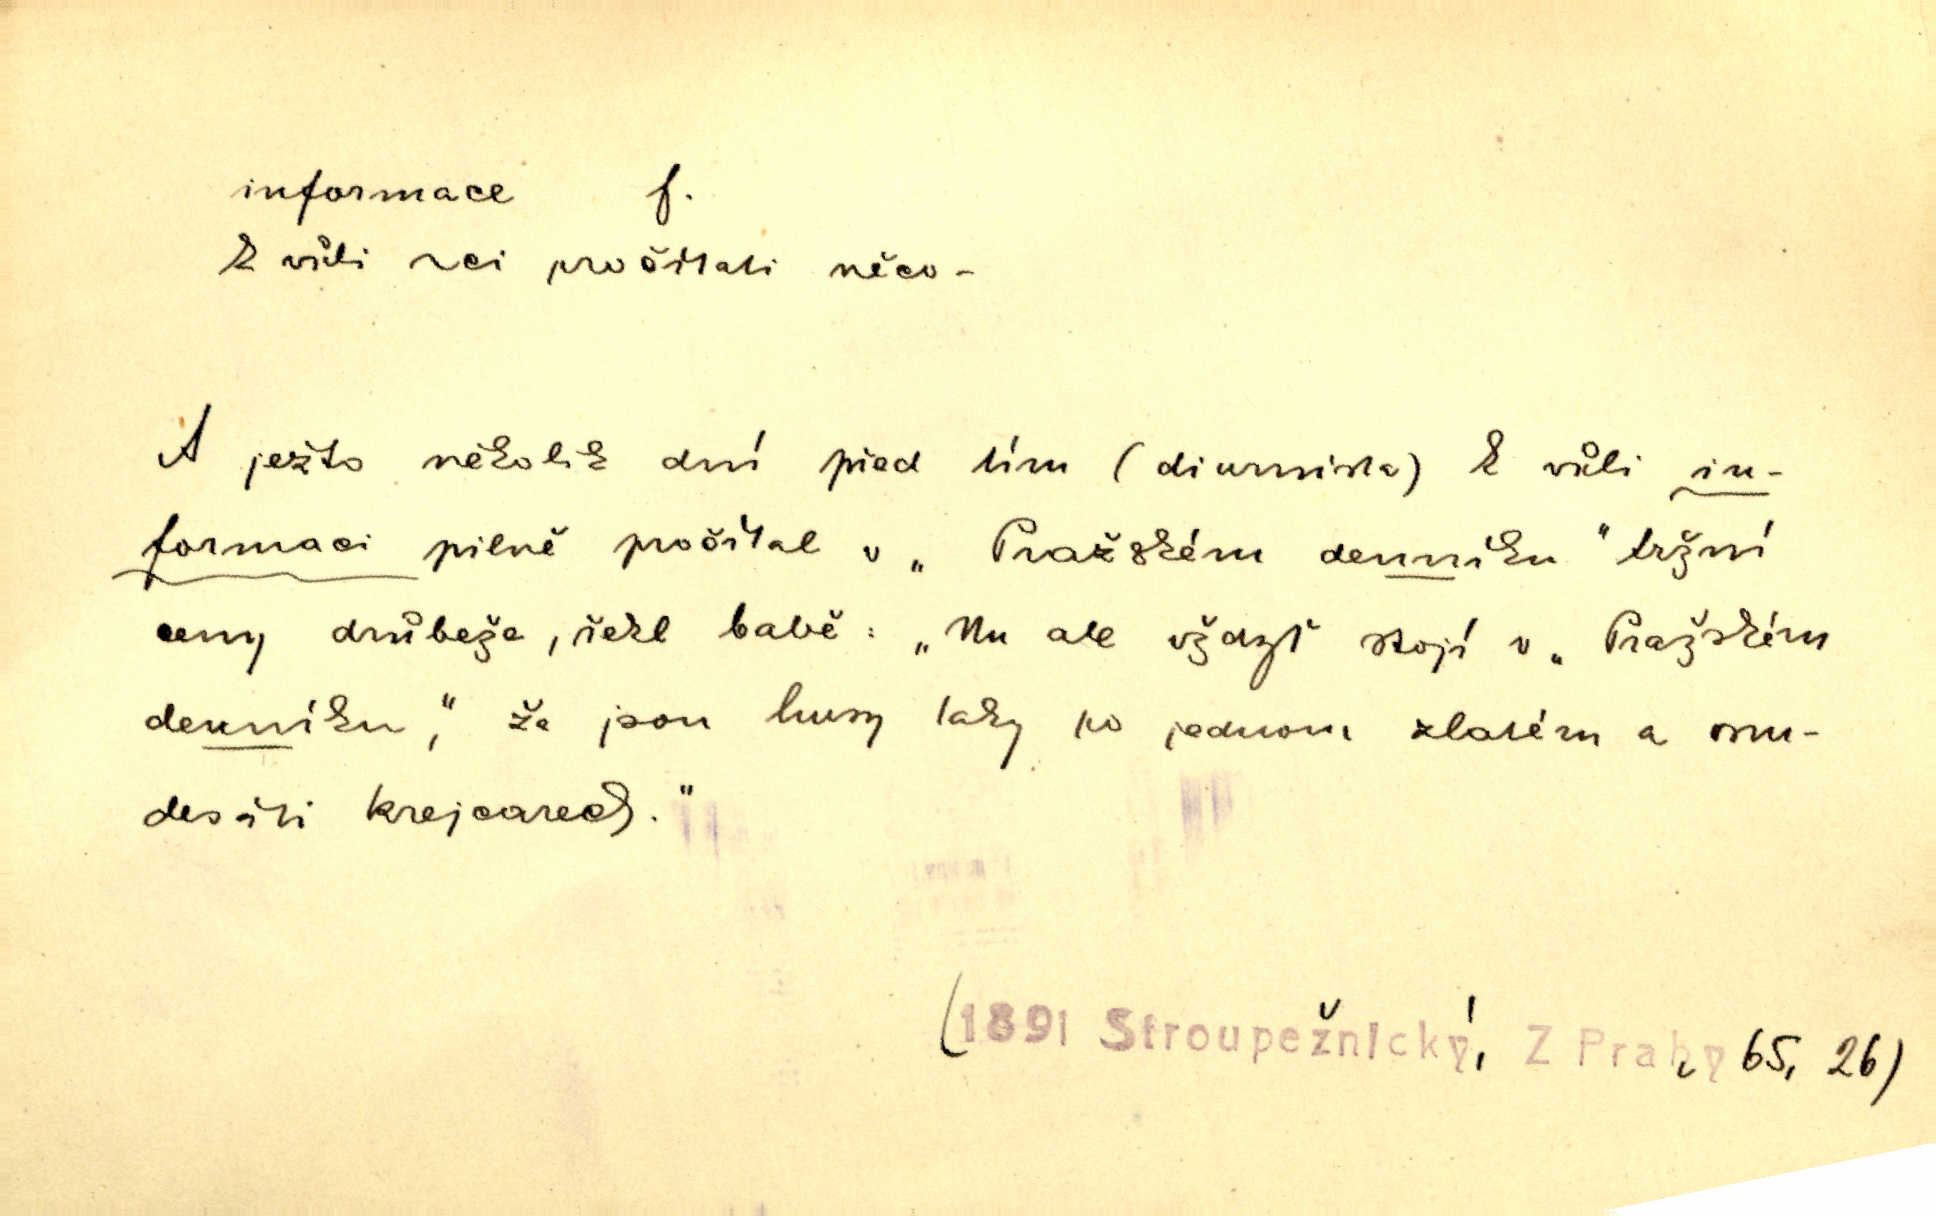 informace f.
k vůli ~ci pročítati něco -
A ježto několik dní před tím (diurnista) k vůli in-
formaci pilně pročítal v „Pražském denníku“ tržní
ceny drůbeže, řekl babě: „Nu ale vždyť stojí v „Pražském
denníku,“ že jsou husy taky po jednom zlatém a osm-
desíti krejcarech.“
(1891 Stroupežnický, Z Prahy 65, 26)